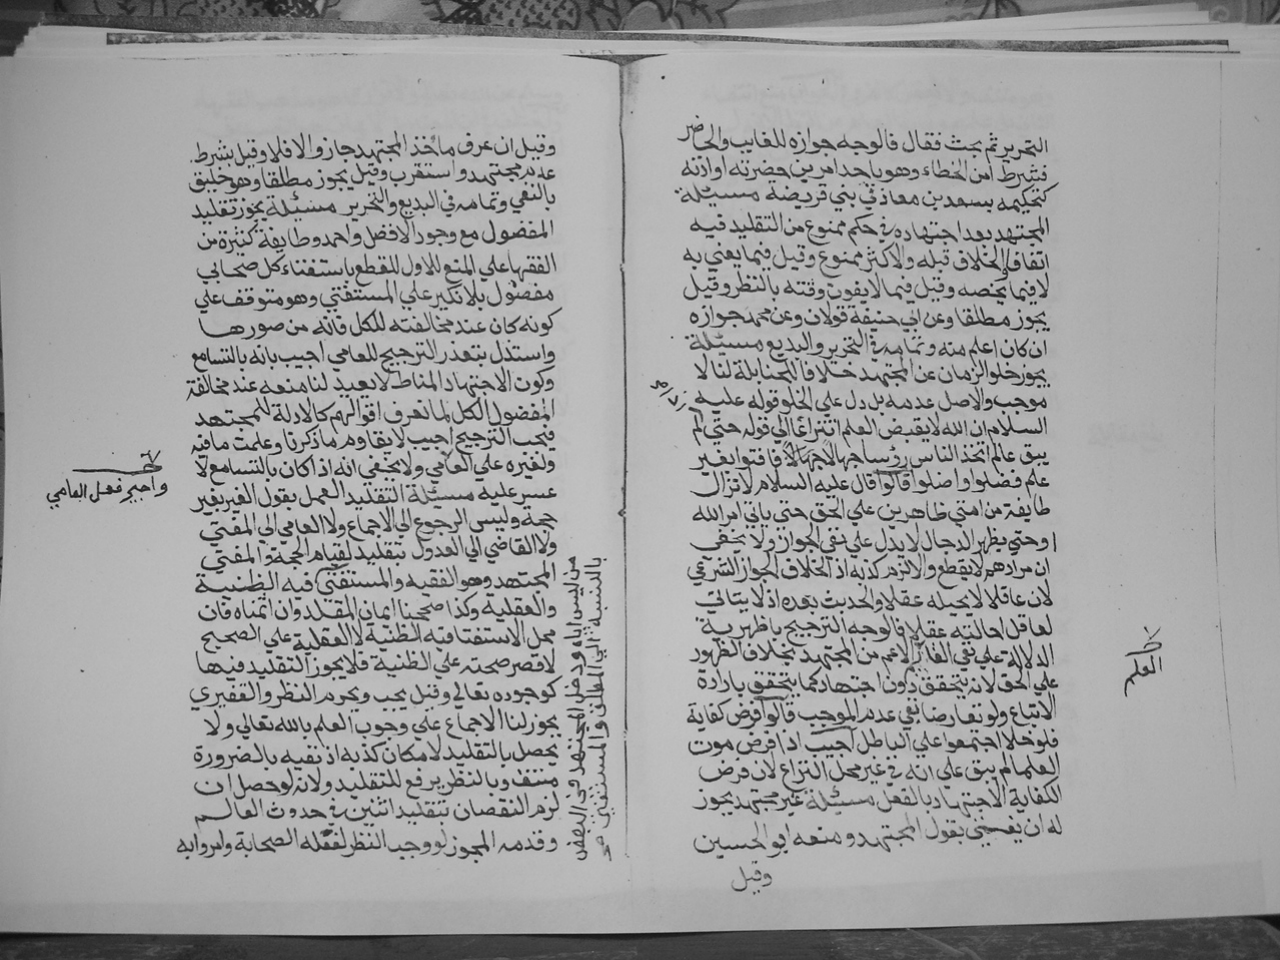 التحرير ثم بحث فقال فالوجه جوازه للغايب والحاضر
فبشرط امن الخطاء وهو باحد امرين حضرته او اذنه
كتحكيمه بسعد بن معاذ في بني قريضة مسئلة
المجتهد بعد اجتهاده في حكم ممنوع من التقليد فيه
اتفاقا والخلاف قبله والاكثر ممنوع وقيل فيما يفتي به
لا فيما يخصه وقيل فيما لا يفوت وقته بالنظر وقيل
يجوز مطلقا وعن ابي حنيفة قولان وعن محمد جوازه
ان كان اعلم منه وتمامه في التحرير والبديع مسئلة
يجوز خلو الزمان عن المجتهد خلافا للحنابلة لنا لا
موجب والاصل عدمه بل دل علي الخلو قوله عليه
السلام ان الله لا يقبض العلم انتزاعا الي قوله حتي لم
يبق عالم اتخذ الناس رؤسا جهالا فافتوا بغير
علم فضلوا واضلوا قالوا قال عليه السلام لا تزال
طايفة من امتي ظاهرين علي الحق حتي ياتي امر الله
او حتي يظهر الدجال لا يدل علي نفي الجواز ولا يخفي
ان مرادهم لا يقطع والا لزم كذبه اذ الخلاف الجواز الشرعي
لان عاقلا لا يحيله عقلا والحديث بعده اذ لا يتاتي
لعاقل احالته عقلا فالوجه الترجيح باظهرية
الدلالة علي نفي العالم الاعم من المجتهد بخلاف الظهور
علي الحق لانه يتحقق دون اجتهاد كما يتحقق بارادة
الاتباع ولو تعارضا بقي عدم الموجب قالوا فرض كفاية
فلو خلا اجتمعوا علي الباطل اجيب اذا فرض موت
العلما لم يبق علي انه في غير محل النزاع لان فرض
الكفاية الاجتهاد بالفعل مسئلة غير مجتهد يجوز
له ان يفتي بقول المجتهد ومنعه ابو الحسين
وقيل
العلم
وقيل ان عرف ماخذ المجتهد جاز والا فلا وقيل بشرط
عدم مجتهد واستقرب وقيل يجوز مطلقا وهو خليق
بالنفي وتمامه في البديع والتحرير مسئلة يجوز تقليد
المفضول مع وجود الافضل واحمد وطايفة كثيرة من
الفقها علي المنع للاول للقطع باستفتاء كل صحابي
مفضول بلا نكير علي المستفتي وهو متوقف علي
كونه كان عند مخالفته للكل فانه من صورها
واستدل بتعذر الترجيح للعامي اجيب بانه بالتسامع
وكون الاجتهاد المناط لا يعيد لنا منعه عند مخالفة
المفضول الكل لما تعرف اقوالهم كالادلة للمجتهد
فيجب الترجيح اجيب لا يقاوم ما ذكرنا وعلمت ما فيه
ولغيره علي العامي ولا يخفي انه اذا كان بالتسامع لا
عسر عليه مسئلة التقليد العمل بقول الغير بغير
حجة وليس الرجوع الي الاجماع ولا العامي الي المفتي
ولا القاضي الي العدول بتقليد لقيام الحجة والمفتي
المجتهد وهو الفقيه والمستفتي فيه الظنية
والعقلية وكذا صححنا ايمان المقلد وان اثمناه فان
محل الاستفتا فيه الظنية لا العقلية علي الصحيح
لا قصر صحته علي الظنية فلا يجوز التقليد فيها
كوجوده تعالي وقيل يجب ويحرم النظر والقفيري
يجوز لنا الاجماع علي وجوب العلم بالله تعالي ولا
يحصل بالتقليد لامكان كذبه اذ نفيه بالضرورة
منتف وبالنظر يرفع للتقليد ولانه لو حصل ان
لزم النقضان بتقليد اثنين في حدوث العالم
وقدمه المجوز لو وجب النظر لفعله الصحابة وامروا به
واجيب فعل العامي
من ليس اياه ودخل المجتهد في البعض
بالنسبة الي المطلق والمستفتي